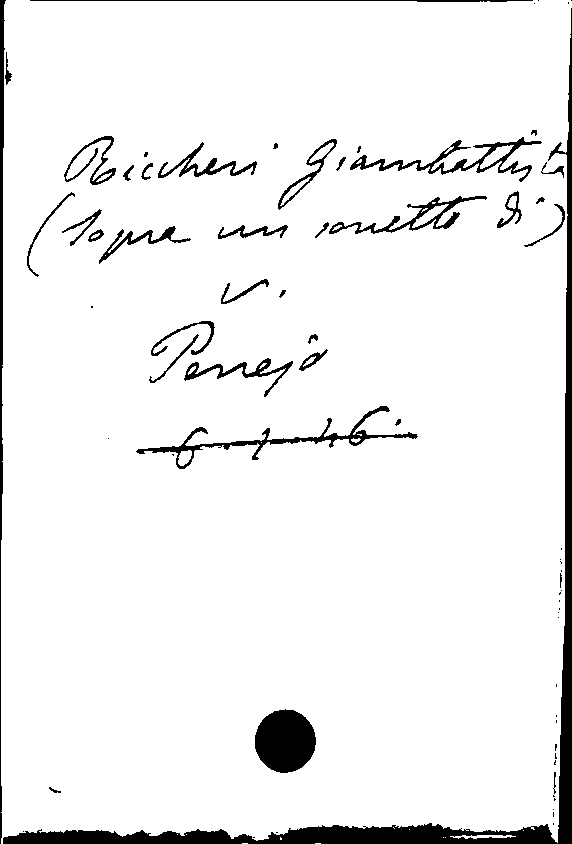 Riccheri Giambattista
(sopra un sonetto di)
v.
6.1.46.